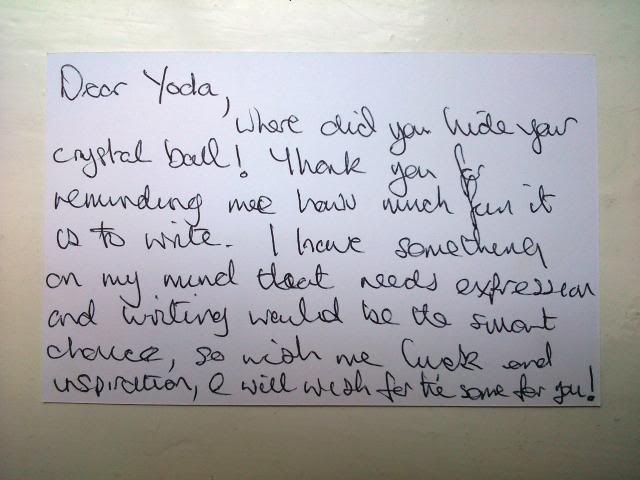 Dear Yoda,
Where did you hide your
crystal ball! Thank you for
reminding me how much fun it
is to write. I have something
on my mind that needs expression
and writing would be the smart
choice, so wish me luck and
inspiration, I will wish for the same for you!